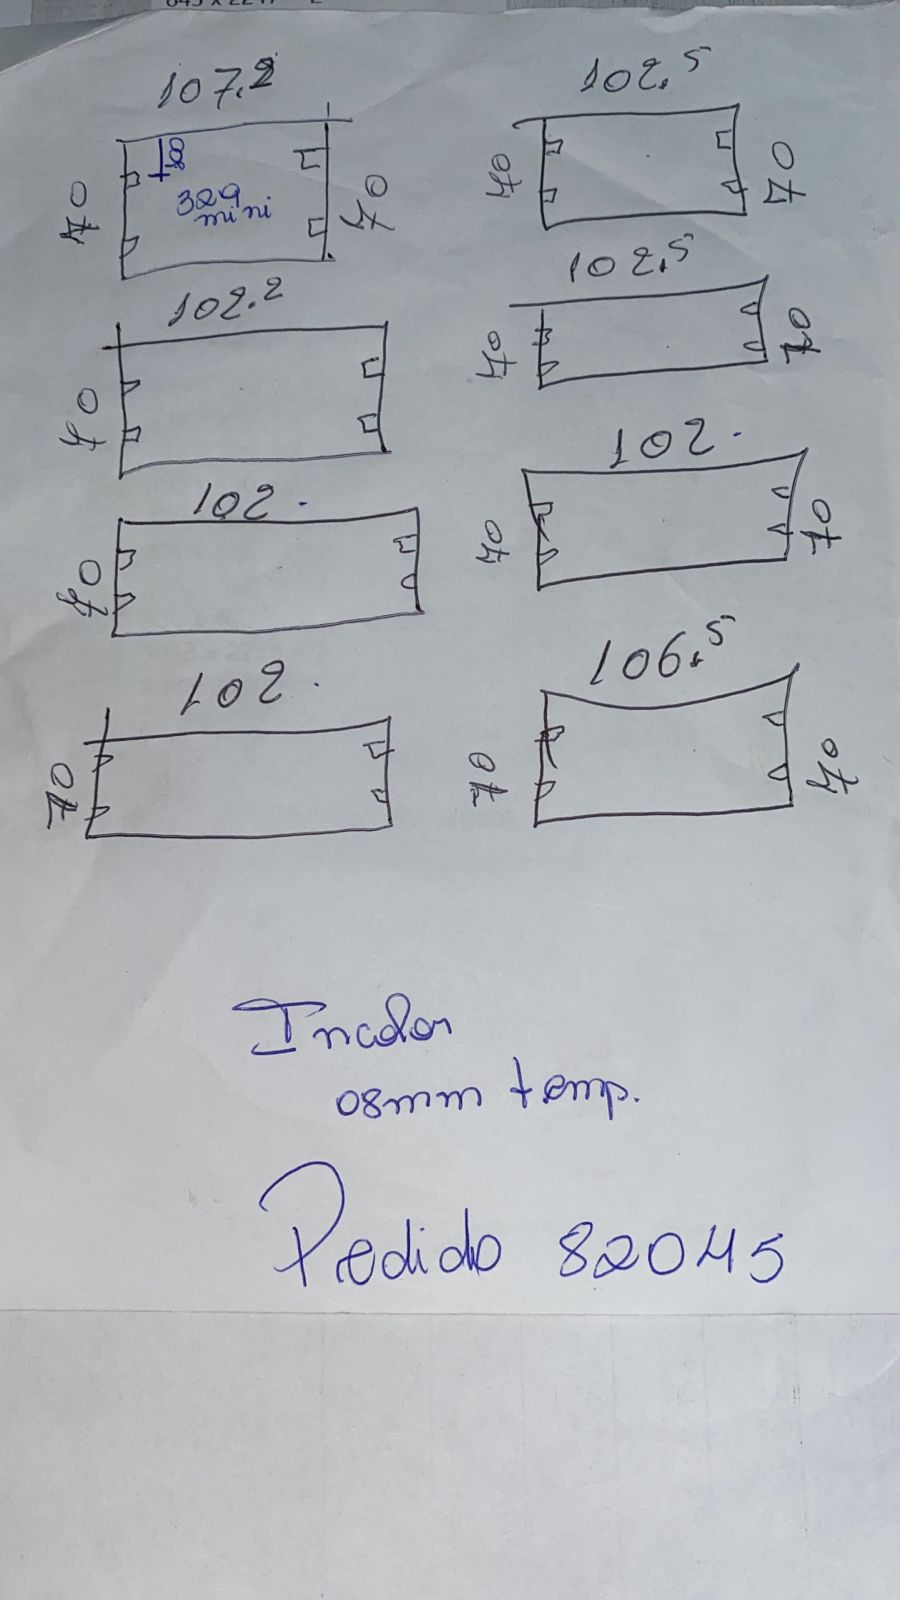 107.2
70
08
329
mini
70
102.2
70
102.
70
102.
70
102.5
70
70
102.5
70
70
102.
70
70
106.5
70
70
Incolor
08mm temp.
Pedido 82045